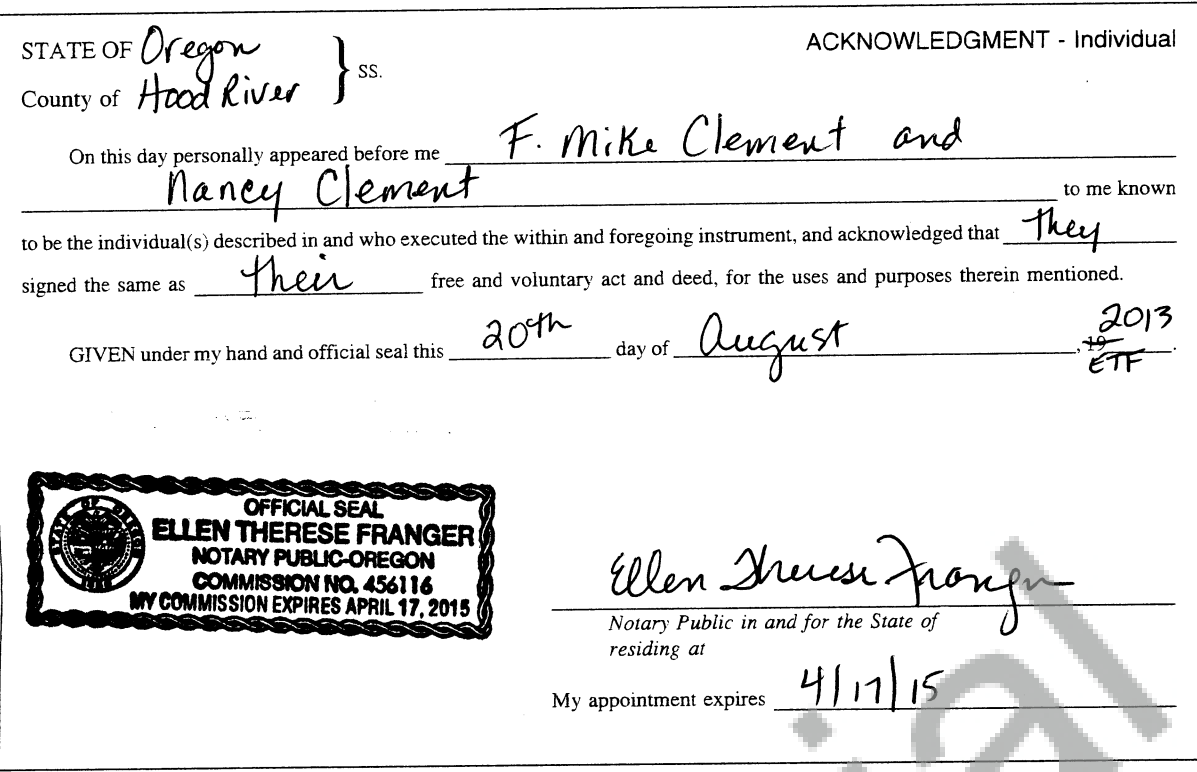 ACKNOWLEDGMENT - Individual
STATE OF Oregon
County of Hood River } SS.
On this day personally appeared before me F. Mike Clement and
Nancy Clement to me known
to be the individual(s) described in and who executed the within and foregoing instrument, and acknowledged that they
signed the same as their free and voluntary act and deed, for the uses and purposes therein mentioned.
2013
GIVEN under my hand and official seal this 20th day of August, 19
ETF
OFFICIAL SEAL
ELLEN THERESE FRANGER
NOTARY PUBLIC-OREGON
COMMISSION NO. 456116
MY COMMISSION EXPIRES APRIL 17, 2015
Ellen Therese Franger
Notary Public in and for the State of
residing at
My appointment expires 4/17/15